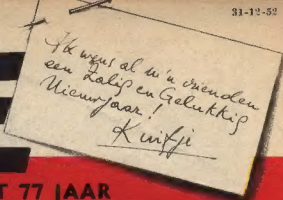 31-12-52
Ik wens al m'n vrienden
een Zalig en Gelukkig
Nieuwjaar!
Kuifje
T 77 JAAR